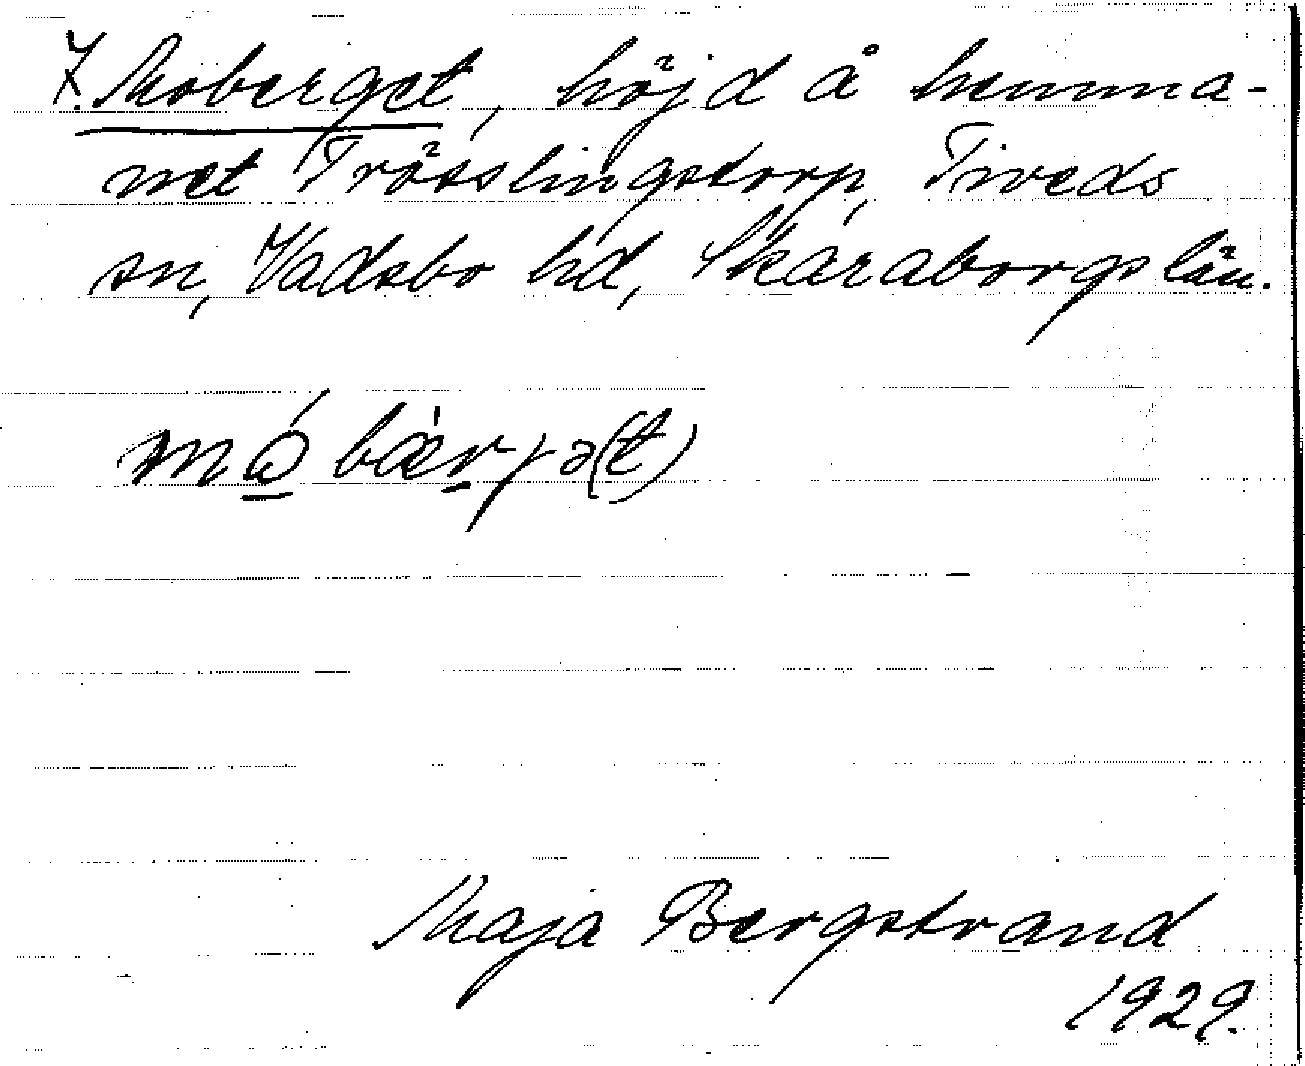 7. Moberget, höjd å hemma-
net Trösslingstorp, Tiveds
sn, Vadsbo hd, Skaraborgs län.
mó̠ bær̠jə(t)
Maja Bergstrand
1929.